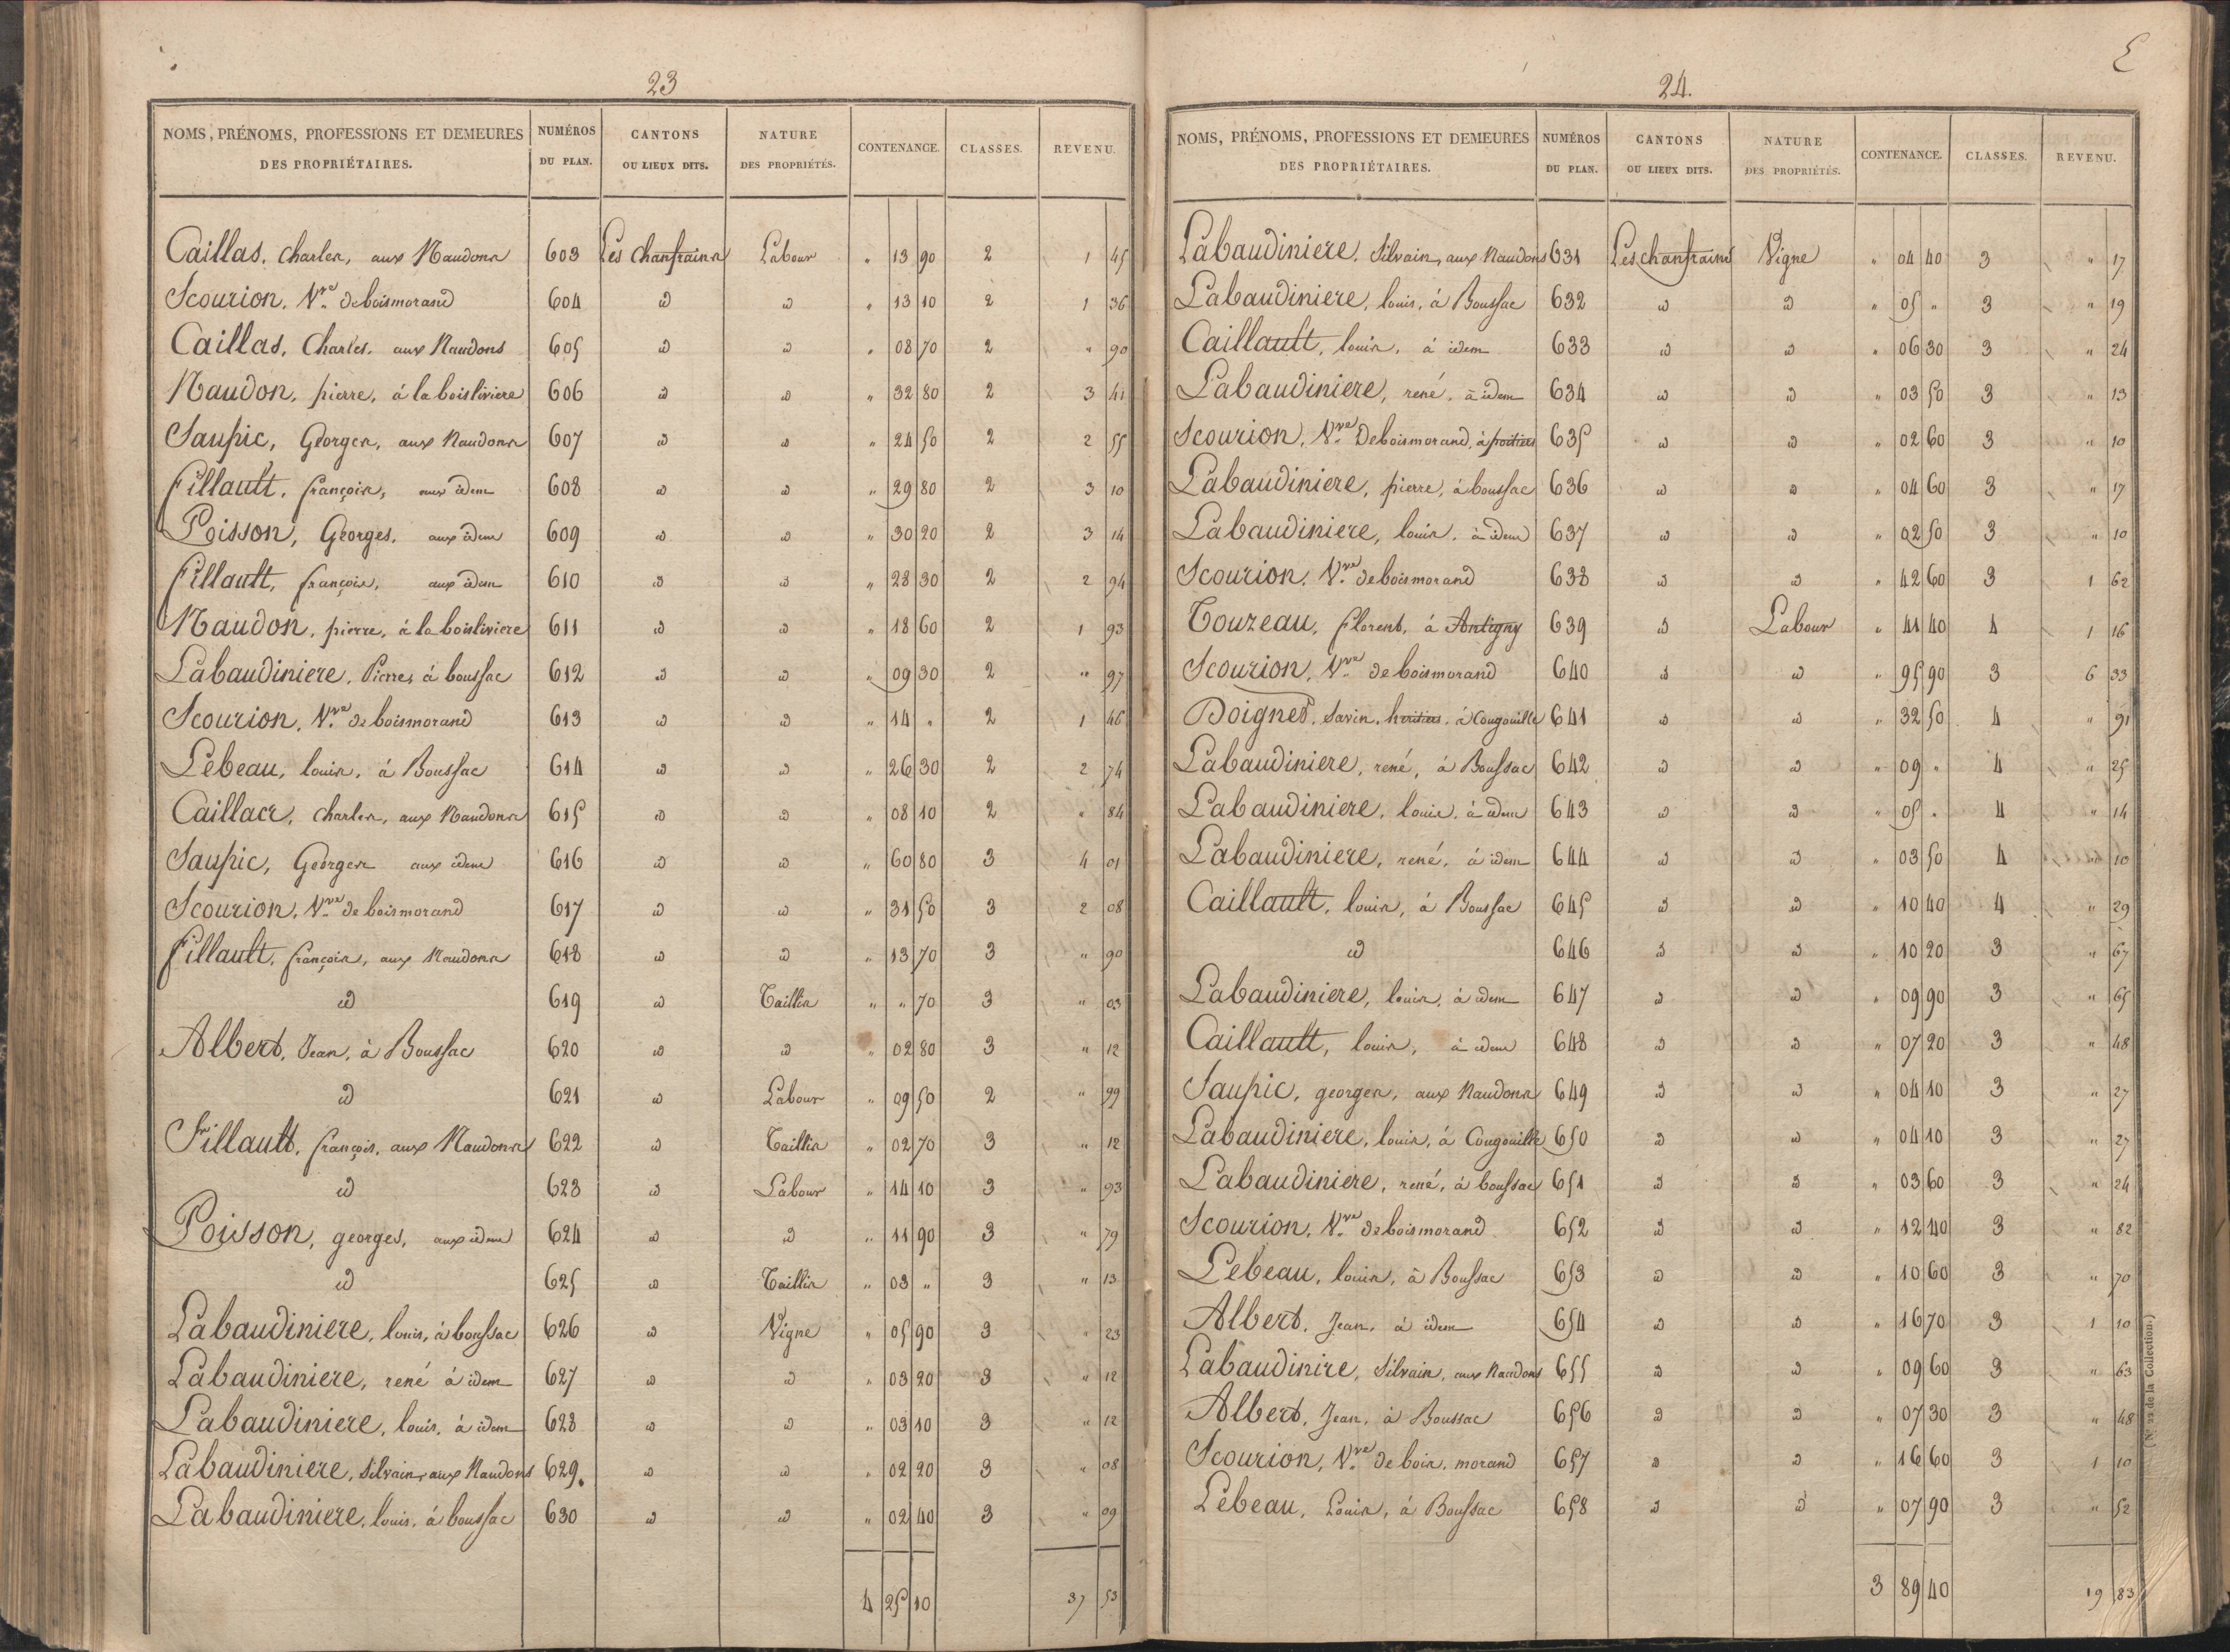 23
NOMS, PRÉNOMS, PROFESSIONS ET DEMEURES DES PROPRIÉTAIRES. NUMÉROS DU PLAN. CANTONS OU LIEUX DITS. NATURE DES PROPRIÉTÉS. CONTENANCE. CLASSES. REVENU.
Caillas, charles, aux Naudons 603 Les chanfrains Labour " 13 90 2 1 45
Scourion, Vve deboismorand 604 id id " 13 10 2 1 36
Caillas, Charles, aux Naudons 605 id id " 08 70 2 " 90
Naudon, pierre, à la boisliviere 606 id id " 32 80 2 3 41
Saupic, Georges, aux Naudons 607 id id " 24 50 2 2 55
Fillault, françois, aux idem 608 id id " 29 80 2 3 10
Poisson, Georges, aux idem 609 id id " 30 20 2 3 14
Fillault, françois, aux idem 610 id id " 28 30 2 2 94
Naudon, pierre, à la boisliviere 611 id id " 18 60 2 1 93
Labaudiniere, Pierre, à boussac 612 id id " 09 30 2 " 97
Scourion, Vve de boismorand 613 id id " 14 " 2 1 46
Lebeau, louis, à Boussac 614 id id " 26 30 2 2 74
Caillas, charles, aux Naudons 615 id id " 08 10 2 " 84
Saupic, Georges aux idem 616 id id " 60 80 3 4 01
Scourion, Vve de boismorand 617 id id " 31 50 3 2 08
Fillault, françois, aux Naudons 618 id id " 13 70 3 " 90
id 619 id Taillis " " 70 3 " 03
Albert, Jean, à Boussac 620 id id " 02 80 3 " 12
id 621 id Labour " 09 50 2 " 99
Fillault, françois, aux Naudons 622 id Taillis " 02 70 3 " 12
id 623 id Labour " 14 10 3 " 93
Poisson, georges, aux idem 624 id id " 11 90 3 " 79
id 625 id Taillis " 03 " 3 " 13
Labaudiniere, louis, à boussac 626 id Vigne " 05 90 3 " 23
Labaudiniere, rené à idem 627 id id " 03 20 3 " 12
Labaudiniere, louis, à idem 628 id id " 03 10 3 " 12
Labaudiniere, Silvain, aux Naudons 629. id id " 02 20 3 " 08
Labaudiniere, louis, à boussac 630 id id " 02 40 3 " 09
4 25 10 37 53
24.
NOMS, PRÉNOMS, PROFESSIONS ET DEMEURES DES PROPRIÉTAIRES. NUMÉROS DU PLAN. CANTONS OU LIEUX DITS. NATURE DES PROPRIÉTÉS. CONTENANCE. CLASSES. REVENU.
Labaudiniere, Silvain, aux Naudons 631 Les chanfrains Vigne " 04 40 3 " 17
Labaudiniere, louis, à Boussac 632 id id " 05 " 3 " 19
Caillault, louis, à idem 633 id id " 06 30 3 " 24
Labaudiniere, rené, à idem 634 id id " 03 50 3 " 13
Scourion, Vve Deboismorand, à poitiers 635 id id " 02 60 3 " 10
Labaudiniere, pierre, à boussac 636 id id " 04 60 3 " 17
Labaudiniere, louis, à idem 637 id id " 02 50 3 " 10
Scourion, Vve deboismorand 638 id id " 42 60 3 1 62
Touzeau, florent, à Antigny 639 id Labour " 41 40 4 1 16
Scourion, Vve de boismorand 640 id id " 95 90 3 6 33
Doignet, Savin, heritiers, à Cougouille 641 id id " 32 50 4 " 91
Labaudiniere, rené, à Boussac 642 id id " 09 " 4 " 25
Labaudiniere, louis, à idem 643 id id " 05 " 4 " 14
Labaudiniere, rené, à idem 644 id id " 03 50 4 " 10
Caillault, louis, à Boussac 645 id id " 10 40 4 " 29
id 646 id id " 10 20 3 " 67
Labaudiniere, louis, à idem 647 id id " 09 90 3 " 65
Caillault, louis, à idem 648 id id " 07 20 3 " 48
Saupic, georges, aux Naudons 649 id id " 04 10 3 " 27
Labaudiniere, louis, à Cougouille 650 id id " 04 10 3 " 27
Labaudiniere, rené, à boussac 651 id id " 03 60 3 " 24
Scourion, Vve deboismorand 652 id id " 12 40 3 " 82
Lebeau, louis, à Boussac 653 id id " 10 60 3 " 70
Albert, Jean, à idem 654 id id " 16 70 3 1 10
Labaudinire, Silvain, aux Naudons 655 id id " 09 60 3 " 63
Albert, Jean, à Boussac 656 id id " 07 30 3 " 48
Scourion, Vve de bois, morand 657 id id " 16 60 3 1 10
Lebeau, Louis, à Boussac 658 id id " 07 90 3 " 52
3 89 40 19 83
de la Collection.)